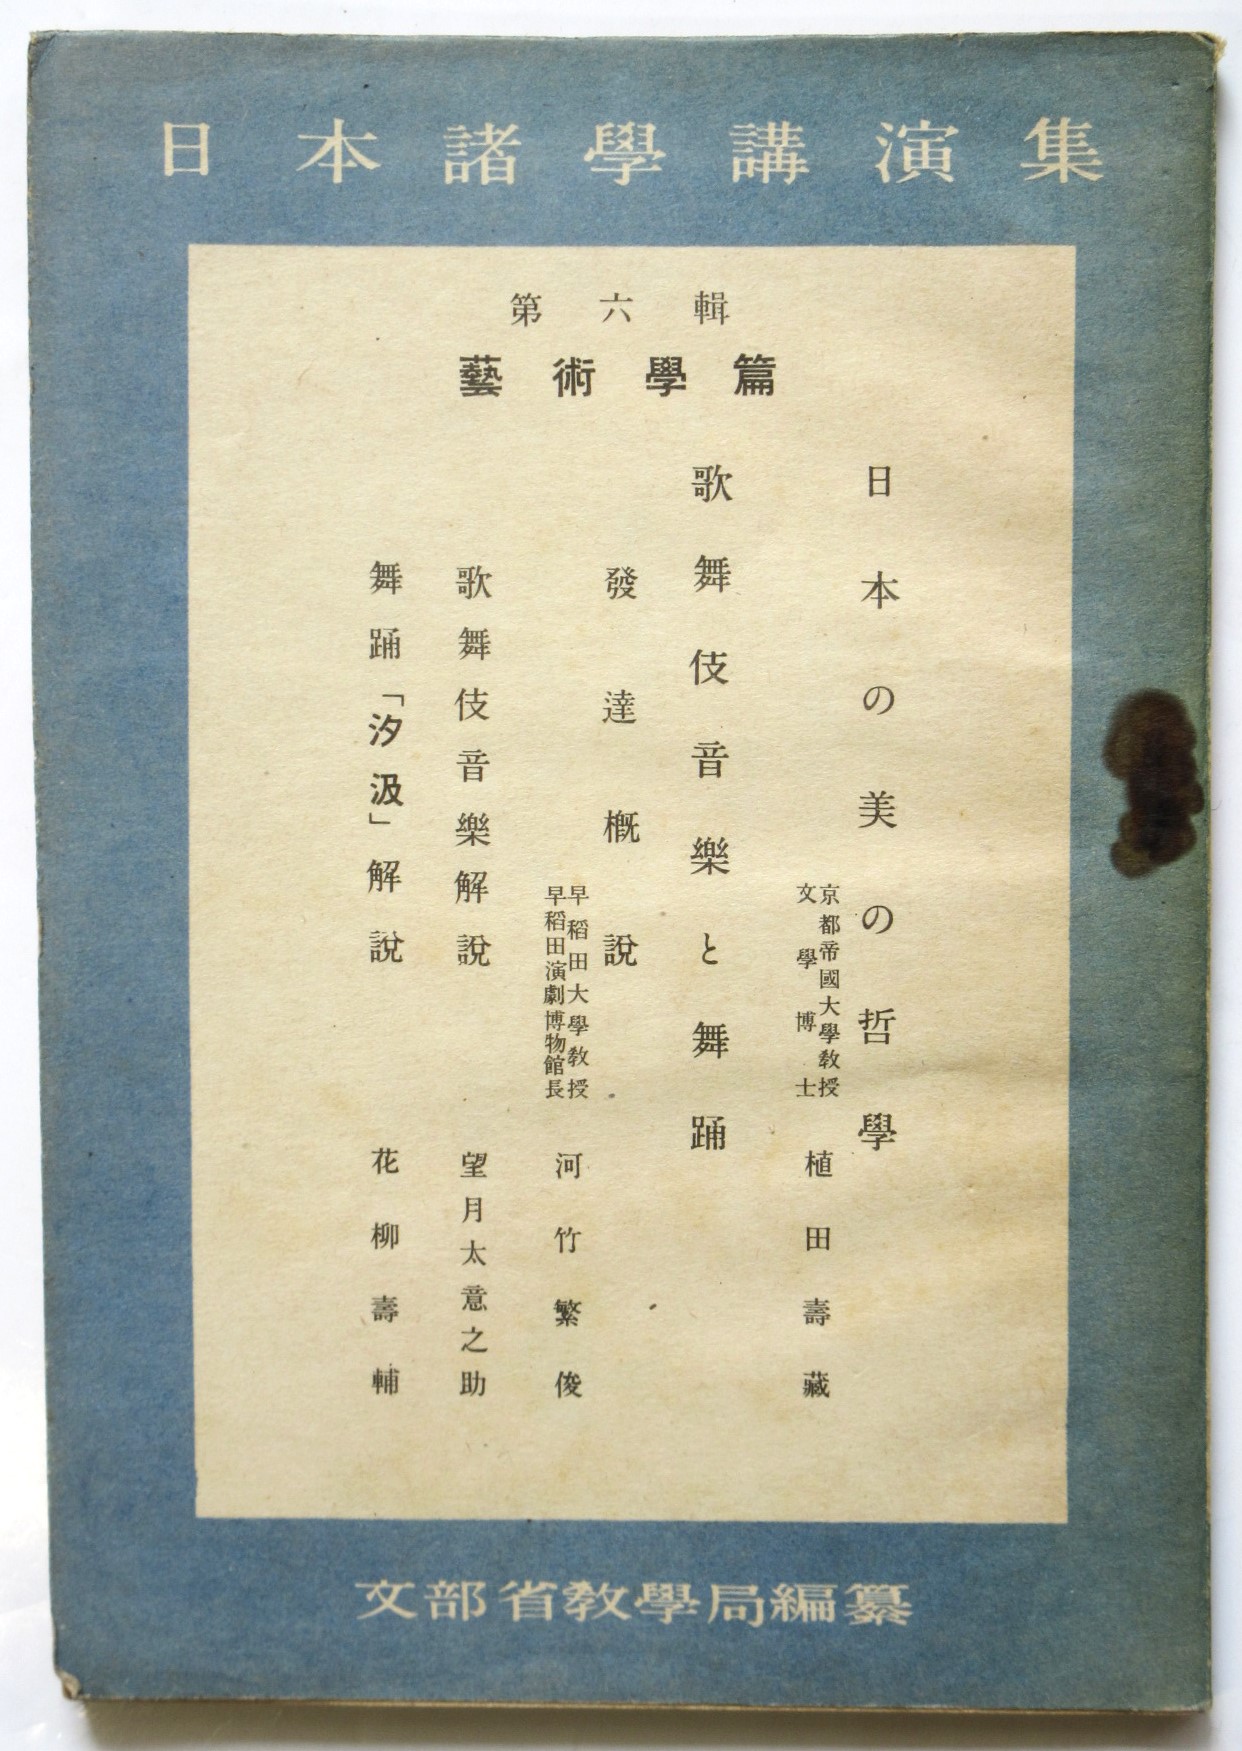 日本諸學講演集
第六輯
藝術學篇
日本の美の哲學
京都帝國大學教授
文學博士
植田壽藏
歌舞伎音樂と舞踊
發達概説
早稲田大學教授
早稲田演劇博物館長
河竹繁俊
歌舞伎音樂解説
望月太意之助
舞踊「汐汲」解説
花柳壽輔
文部省教學局編纂